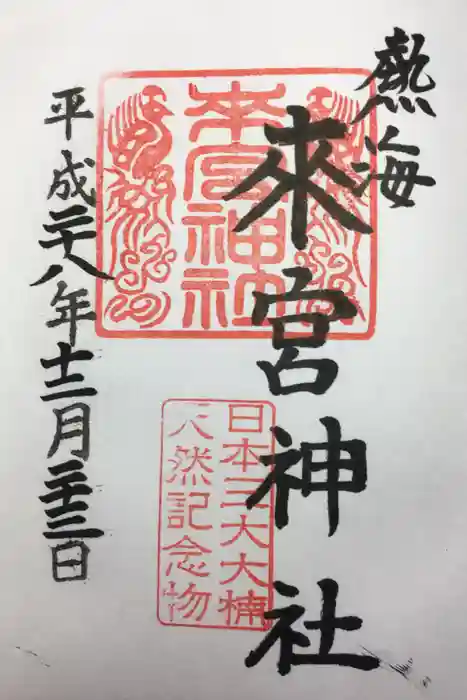 熱海
來宮神社
平成二十八年十二月二十三日
来宮神社
日本三大大楠
天然記念物